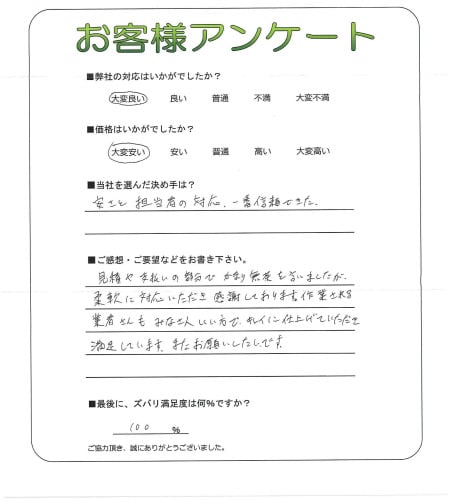 お客様アンケート
■弊社の対応はいかがでしたか？
大変良い 良い 普通 不満 大変不満
■価格はいかがでしたか？
大変安い 安い 普通 高い 大変高い
■当社を選んだ決め手は？
安さと担当者の対応、一番信頼できた。
■ご感想・ご要望などをお書き下さい。
見積や支払いの部分でかなり無理を言いましたが、
柔軟に対応いただき感謝しております。作業される
業者さんもみなさんいい方で、キレイに仕上げていただき
満足しています。またお願いしたいです。
■最後に、ズバリ満足度は何％ですか？
100 %
ご協力頂き、誠にありがとうございました。